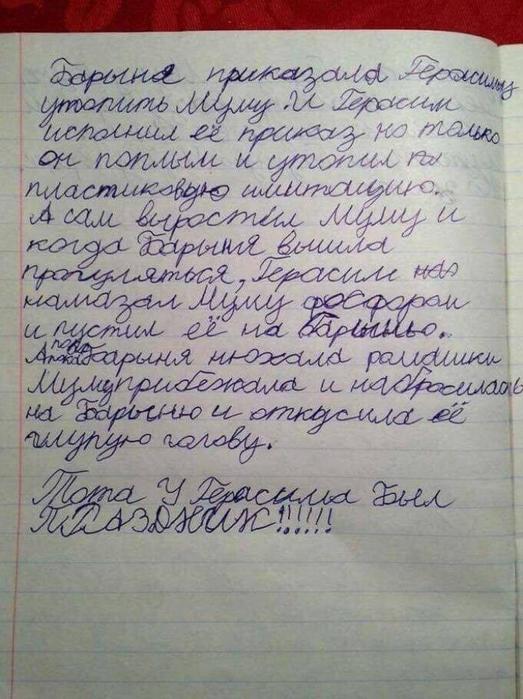 Барыня приказала Герасиму
утопить Муму И Герасим
исполнил её приказ но только
он поплыл и утопил
пластиковую имитацию.
А сам выростел Муму и
когда Барыня вышла
прогуляться, Герасим
намазал Муму фосфором
и пустил её на Барыню.
Барыня нюхала ромашки
Муму прибежала и набросилась
на Барыню и откусила её
глупую голову.
Тота У Герасима Был
ПРАЗДНИК!!!!!!